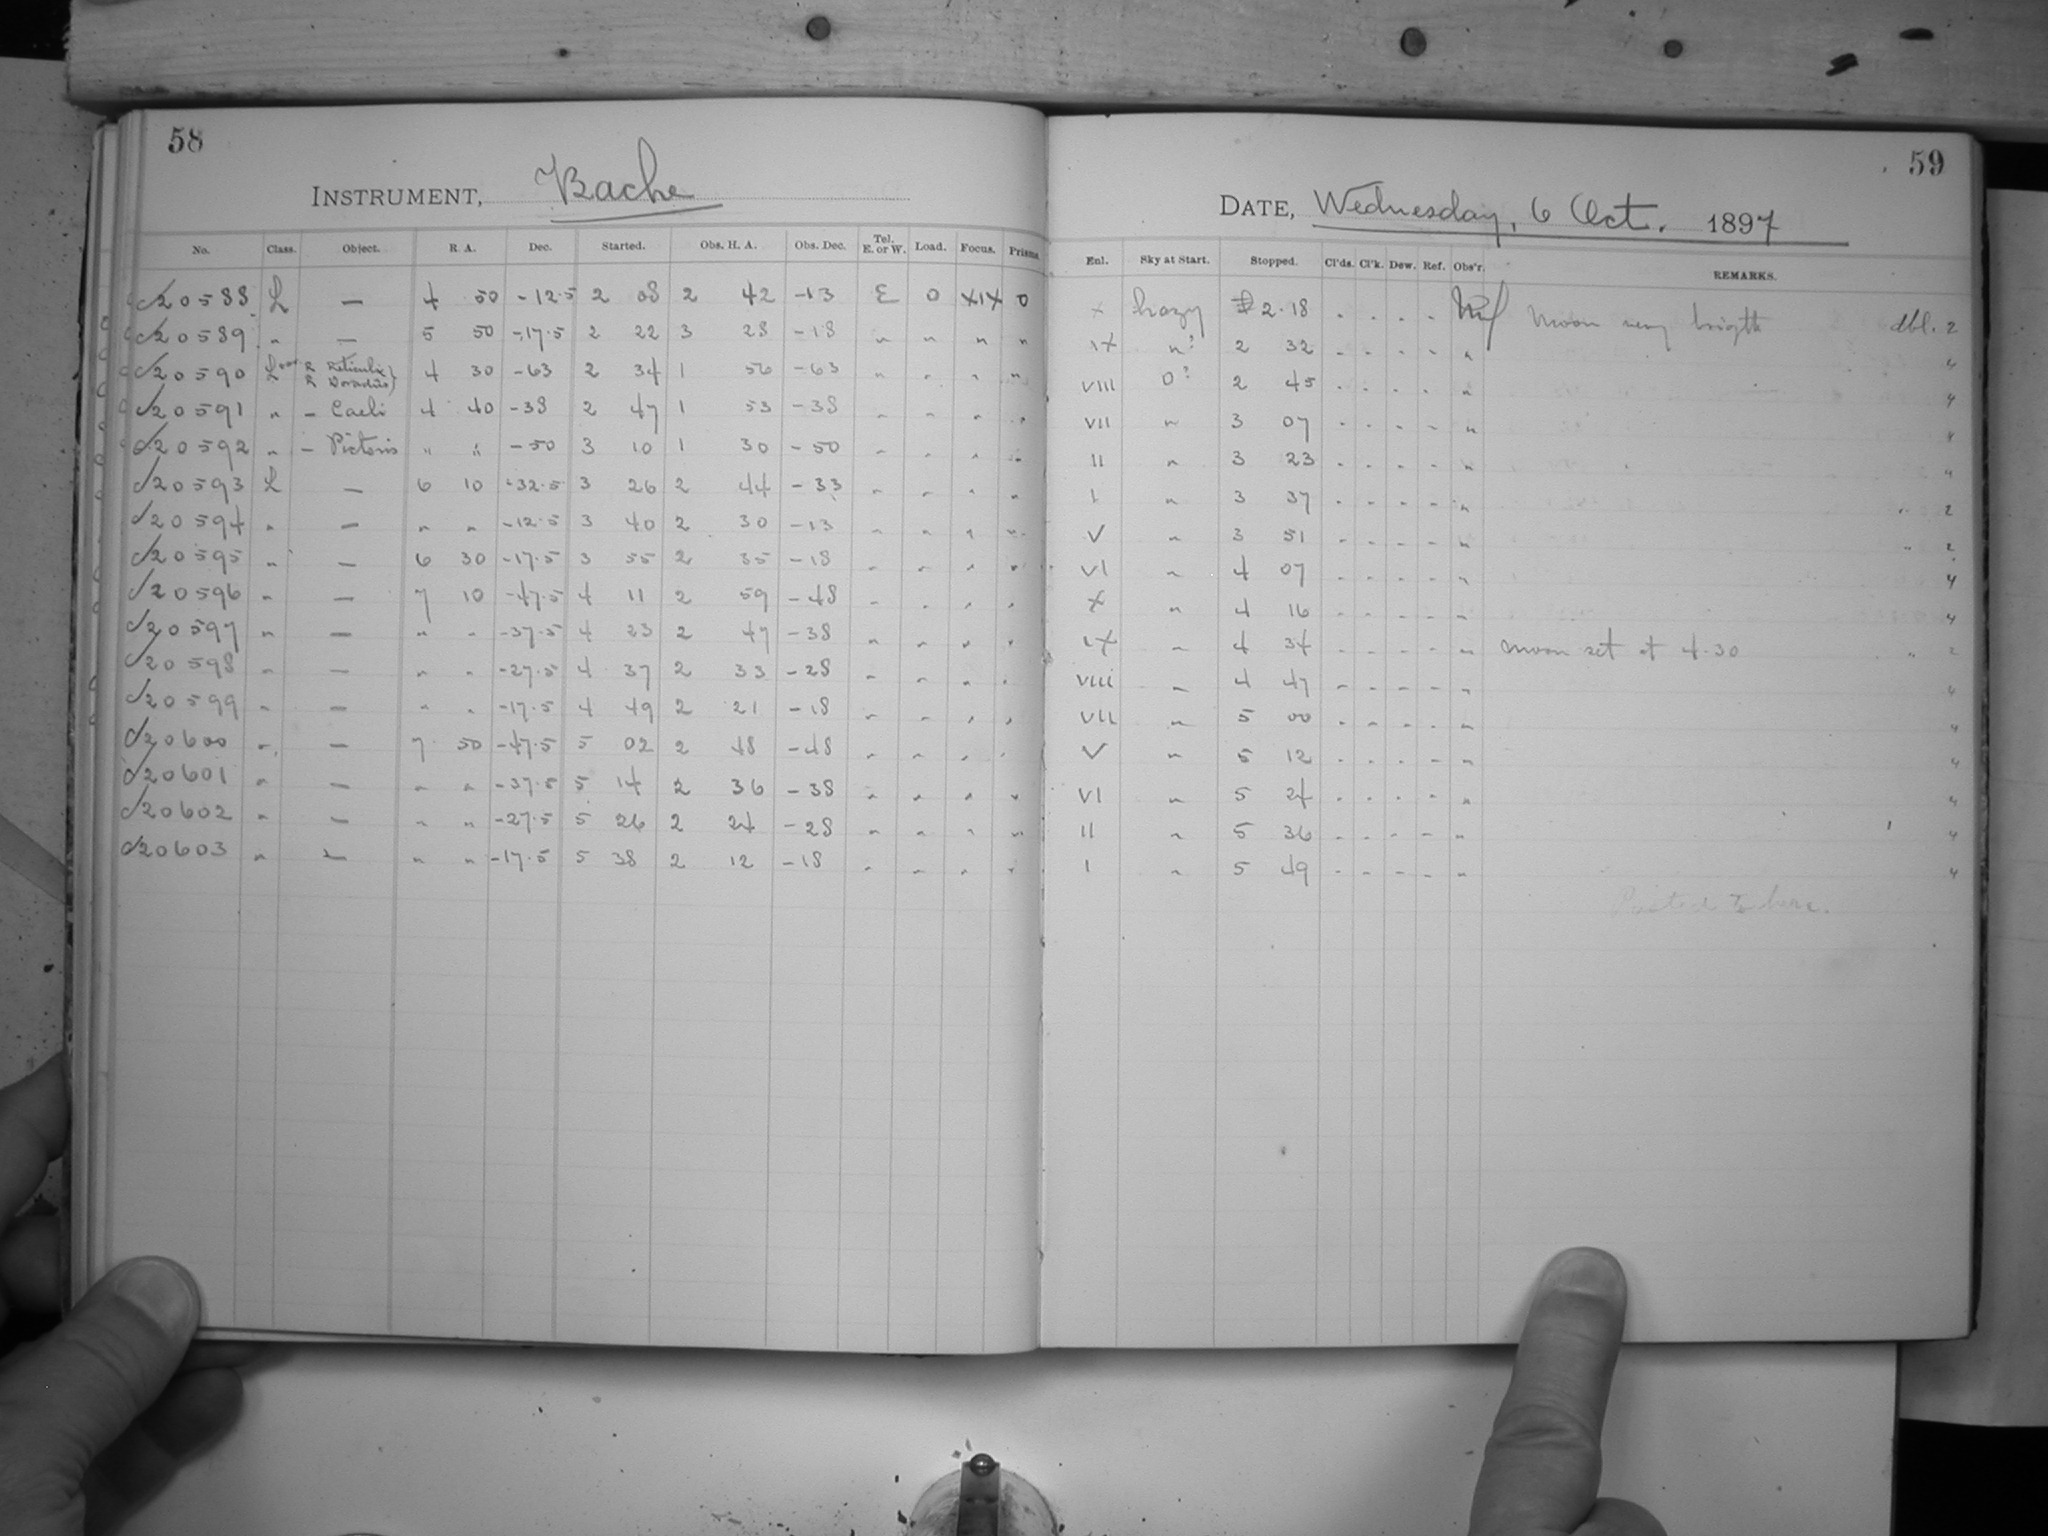 58
INSTRUMENT, Bache
No. Class. Object. R. A. Dec. Started. Obs. H. A. Obs. Dec. Tel. E. or W. Load. Focus. Prisms.
20588 L — 4 50 -12.5 2 08 2 42 -13 E 0 XIX 0
20589 " — 5 50 -17.5 2 22 3 28 -18 " " " "
20590 R Reticuli R Doradus } 4 30 -63 2 34 1 56 -63 " " " "
20591 " - Caeli 4 40 -38 2 47 1 53 -38 " " " "
20592 " - Pictoris " " -50 3 10 1 30 -50 " " " "
20593 L — 6 10 -32.5 3 26 2 44 -33 " " " "
20594 " — " " -12.5 3 40 2 30 -13 " " " "
20595 " — 6 30 -17.5 3 55 2 35 -18 " " " "
20596 " — 7 10 -47.5 4 11 2 59 -48 " " " "
20597 " — " " -37.5 4 23 2 47 -38 " " " "
20598 " — " " -27.5 4 37 2 33 -28 " " " "
20599 " — " " -17.5 4 49 2 21 -18 " " " "
20600 " — 7 50 -47.5 5 02 2 48 -48 " " " "
20601 " — " " -37.5 5 14 2 36 -38 " " " "
20602 " — " " -27.5 5 26 2 24 -28 " " " "
20603 " — " " -17.5 5 38 2 12 -18 " " " "
59
DATE, Wednesday, 6 Oct. 1897
Enl. Sky at Start. Stopped. Cl'ds. Cl'k. Dew. Ref. Obs'r. REMARKS.
X hazy 2.18 . . . . Moon very brigth dbl. 2
IX "? 2 32 " " " " " "
VIII 0? 2 45 " " " " " "
VII " 3 07 " " " " " "
II " 3 23 " " " " " "
I " 3 37 " " " " " " 2
V " 3 51 " " " " " " 2
VI " 4 07 " " " " " "
X " 4 16 " " " " " "
IX " 4 34 " " " " " moon set at 4.30 " 2
VIII " 4 47 " " " " " "
VII " 5 00 " " " " " "
V " 5 12 " " " " " "
VI " 5 24 " " " " " "
II " 5 36 " " " " " "
I " 5 49 " " " " " "
Posted to here.